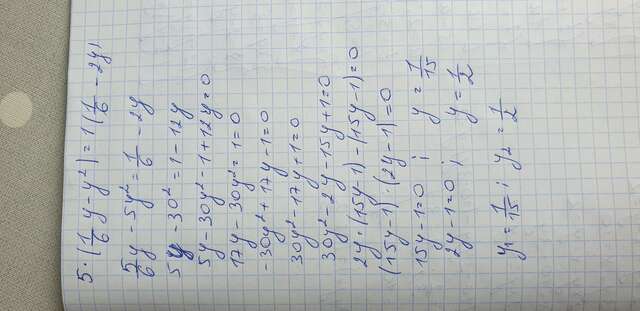 5·(1/6 y - y²) = 1(1/6 - 2y)
5/6 y - 5y² = 1/6 - 2y
5y - 30² = 1 - 12y
5y - 30y² - 1 + 12y = 0
17y - 30y² = 1 = 0
-30y² + 17y - 1 = 0
30y² - 17y + 1 = 0
30y² - 2y - 15y + 1 = 0
2y·(15y - 1) - (15y - 1) = 0
(15y - 1)·(2y - 1) = 0
15y - 1 = 0 ; y = 1/15
2y - 1 = 0 ; y = 1/2
y₁ = 1/15 ; y₂ = 1/2